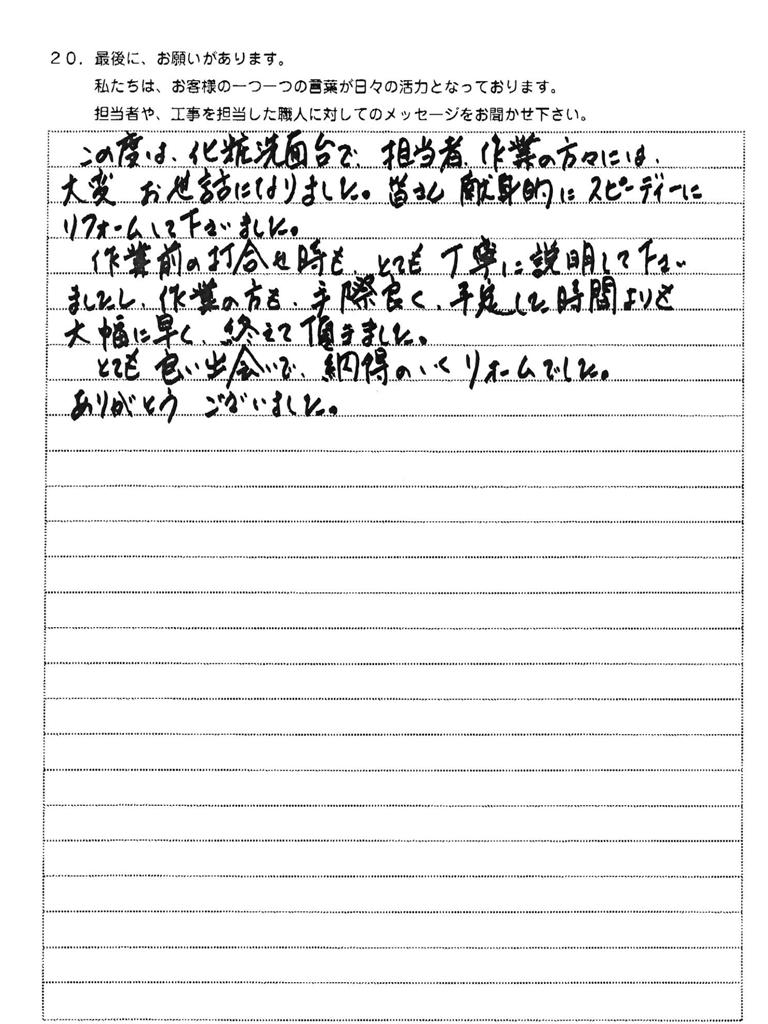 20. 最後に、お願いがあります。
私たちは、お客様の一つ一つの言葉が日々の活力となっております。
担当者や、工事を担当した職人に対してのメッセージをお聞かせ下さい。
この度は、化粧洗面台で、担当者、作業の方々には、
大変 お世話になりました。皆さん 献身的に スピーディーに
リフォームして下さいました。
作業前の打合せ時も、とても 丁寧に説明して下さい
ましたし、作業の方も、手際良く、予定した時間よりも
大幅に早く、終えて頂きました。
とても 良い出会いで、納得のいくリフォームでした。
ありがとう ございました。